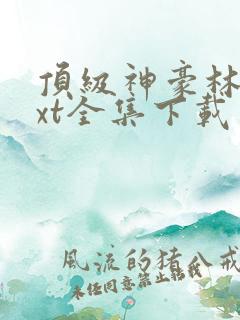 頂級神豪林
xt全集下載
風流的豬八戒
未經同意禁止轉載